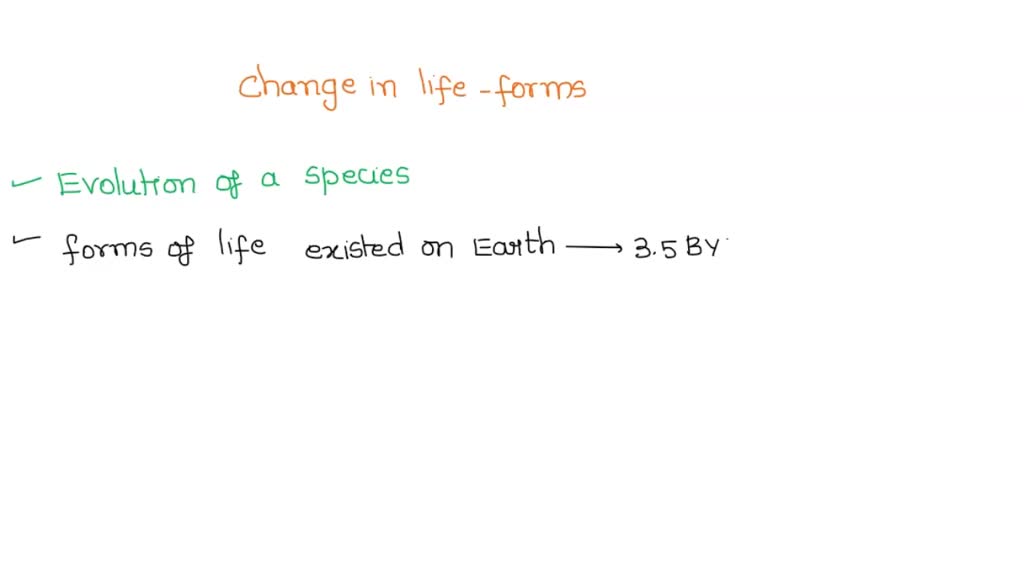 Change in life-forms
Evolution of a species
forms of life existed on Earth → 3.5 BY